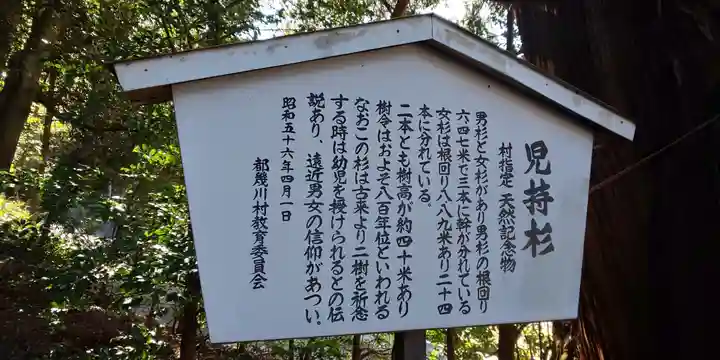 児持杉
村指定 天然記念物
男杉と女杉があり男杉の根回り
六四七米で三本に幹が分れている
女杉は根回り八八九米あり二十四
本に分れている。
二本とも樹高が約四十米あり
樹令はおよそ八百年位といわれる
なおこの杉は古来より二樹を祈念
する時は幼児を授けられるとの伝
説あり、遠近男女の信仰があつい。
昭和五十六年四月一日
都幾川村教育委員会